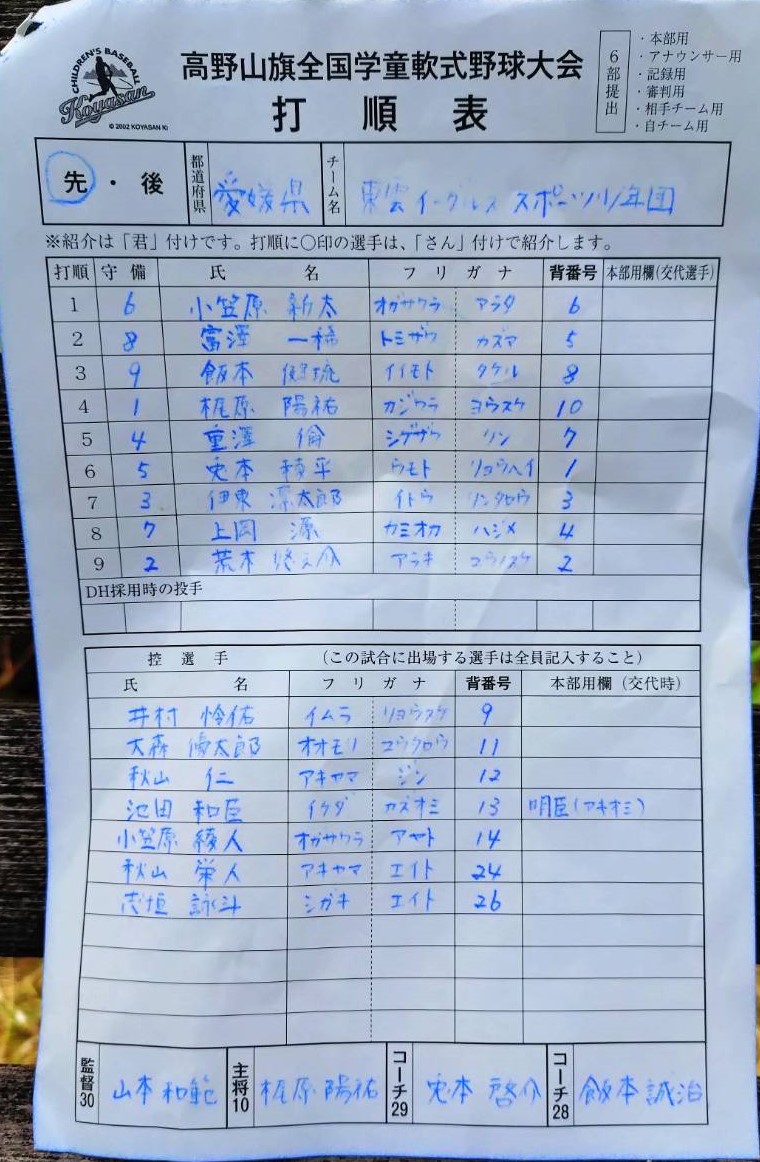 CHILDREN'S BASEBALL
Koyasan
© 2002 KOYASAN K
高野山旗全国学童軟式野球大会
打順表
6部提出
・本部用
・アナウンサー用
・記録用
・審判用
・相手チーム用
・自チーム用
先・後 都道府県 愛媛県 チーム名 東雲イーグルススポーツ少年団
※紹介は「君」付けです。打順に〇印の選手は、「さん」付けで紹介します。
打順 守備 氏名 フリガナ 背番号 本部用欄(交代選手)
1 6 小笠原 新太 オガサワラ アラタ 6
2 8 富澤 一稀 トミザワ カズマ 5
3 9 飯本 健琉 イイモト タケル 8
4 1 梶原 陽祐 カジワラ ヨウスケ 10
5 4 重澤 倫 シゲザワ リン 7
6 5 兎本 稜平 ウモト リョウヘイ 1
7 3 伊東 凛太郎 イトウ リンタロウ 3
8 7 上岡 源 カミオカ ハジメ 4
9 2 荒木 悠之介 アラキ ユウノスケ 2
DH採用時の投手
控選手 (この試合に出場する選手は全員記入すること)
氏名 フリガナ 背番号 本部用欄(交代時)
井村 怜佑 イムラ リョウスケ 9
大森 優太郎 オオモリ ユウタロウ 11
秋山 仁 アキヤマ ジン 12
池田 和臣 イケダ カズオミ 13 明臣(アキオミ)
小笠原 綾人 オガサワラ アヤト 14
秋山 栄人 アキヤマ エイト 24
志垣 詠斗 シガキ エイト 26
監督30 山本和範 主将10 梶原陽祐 コーチ29 兎本啓介 コーチ28 飯本誠治